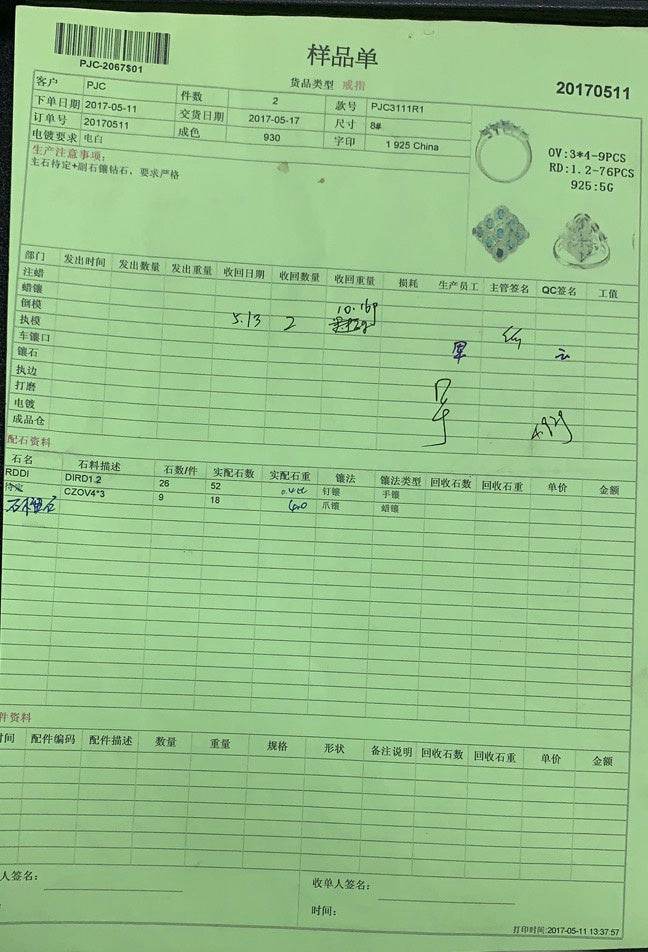 PJC-2067$01
样品单
货品类型 戒指
20170511
客户 PJC 件数 2 款号 PJC3111R1
下单日期 2017-05-11 交货日期 2017-05-17 尺寸 8#
订单号 20170511 成色 930 字印 1 925 China
电镀要求 电白
生产注意事项:
主石待定+副石镶钻石，要求严格
OV:3*4-9PCS
RD:1.2-76PCS
925:5G
部门 发出时间 发出数量 发出重量 收回日期 收回数量 收回重量 损耗 生产员工 主管签名 QC签名 工值
注蜡
蜡镶
倒模
10.16p
执模 5.13 2
车镶口
镶石
执边
打磨
电镀
成品仓
配石资料
石名 石料描述 石数/件 实配石数 实配石重 镶法 镶法类型 回收石数 回收石重 单价 金额
RDDI DIRD1.2 26 52 钉镶 手镶
待定 CZOV4*3 9 18 爪镶 蜡镶
件资料
时间 配件编码 配件描述 数量 重量 规格 形状 备注说明 回收石数 回收石重 单价 金额
人签名:
收单人签名:
时间:
打印时间:2017-05-11 13:37:57